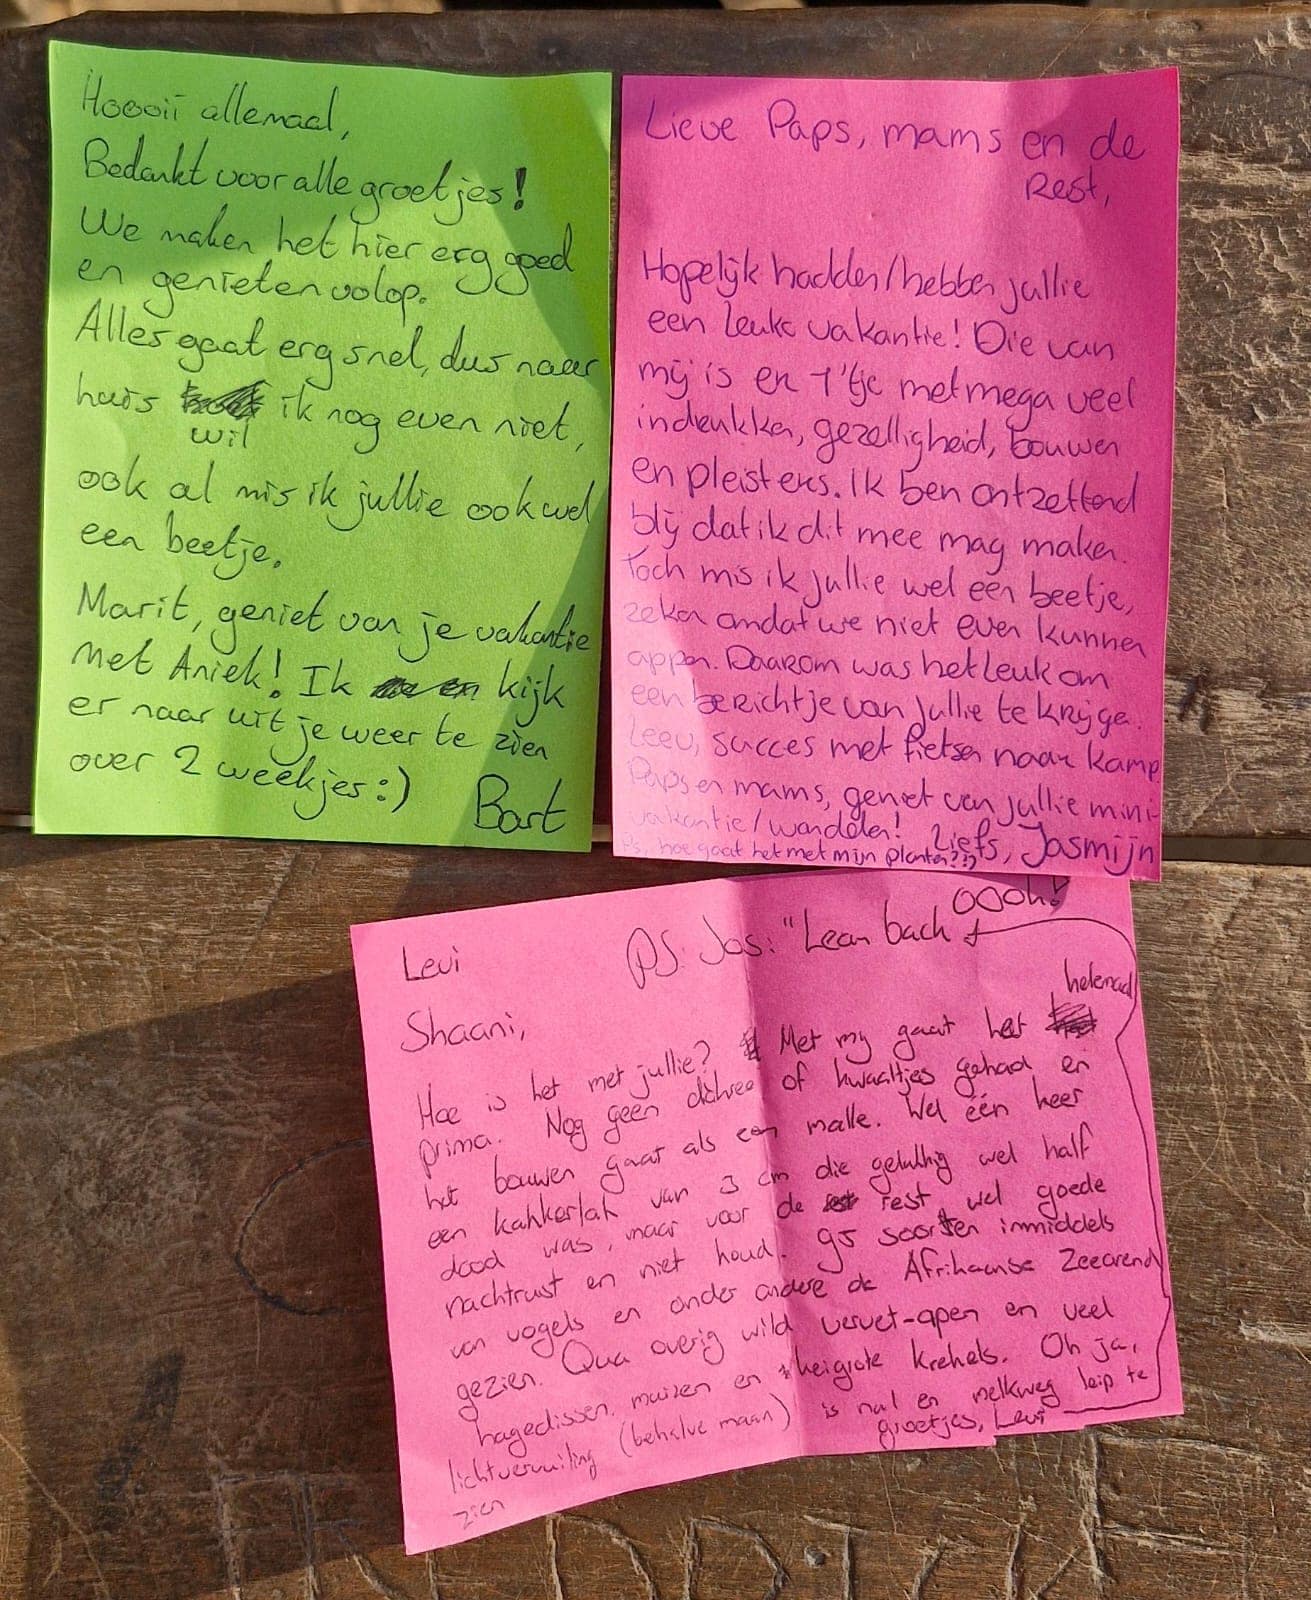 Hoooii allemaal,
Bedankt voor alle groetjes!
We maken het hier erg goed
en genieten volop.
Alles gaat erg snel, dus naar
huis wil ik nog even niet,
ook al mis ik jullie ook wel
een beetje.
Marit, geniet van je vakantie
met Aniek! Ik kijk
er naar uit je weer te zien
over 2 weekjes :)
Bart
Lieve Paps, mams en de
Rest,
Hopelijk hadden/hebben jullie
een leuke vakantie! Die van
mij is er 1'tje met mega veel
indrukken, gezelligheid, bouwen
en pleisters. Ik ben ontzettend
blij dat ik dit mee mag maken.
Toch mis ik jullie wel een beetje,
zeker omdat we niet even kunnen
appen. Daarom was het leuk om
een berichtje van jullie te krijgen.
Leev, succes met fietsen naar kamp
Paps en mams, geniet van jullie mini-
vakantie/wandelen! Liefs, Jasmijn
Ps, hoe gaat het met mijn planten??
Levi
PS: Jos: "Lean back
OOOh!
Shaani,
Hoe is het met jullie? Met my gaat het helemaal
prima. Nog geen of kwaaltjes gehad en
het bouwen gaat als een malle. Wel één keer
een kakkerlak van 3 cm die gelukkig wel half
dood was, maar voor de rest wel goede
nachtrust en niet houd. 95 soorten inmiddels
van vogels en onder andere de Afrikaanse Zeearend
gezien. Qua overig wild vervet-apen en veel
hagedissen, muizen en keigrote krekels. Oh ja,
lichtvervuiling (behalve maan) is nul en melkweg leip te
zien
groetjes, Levi